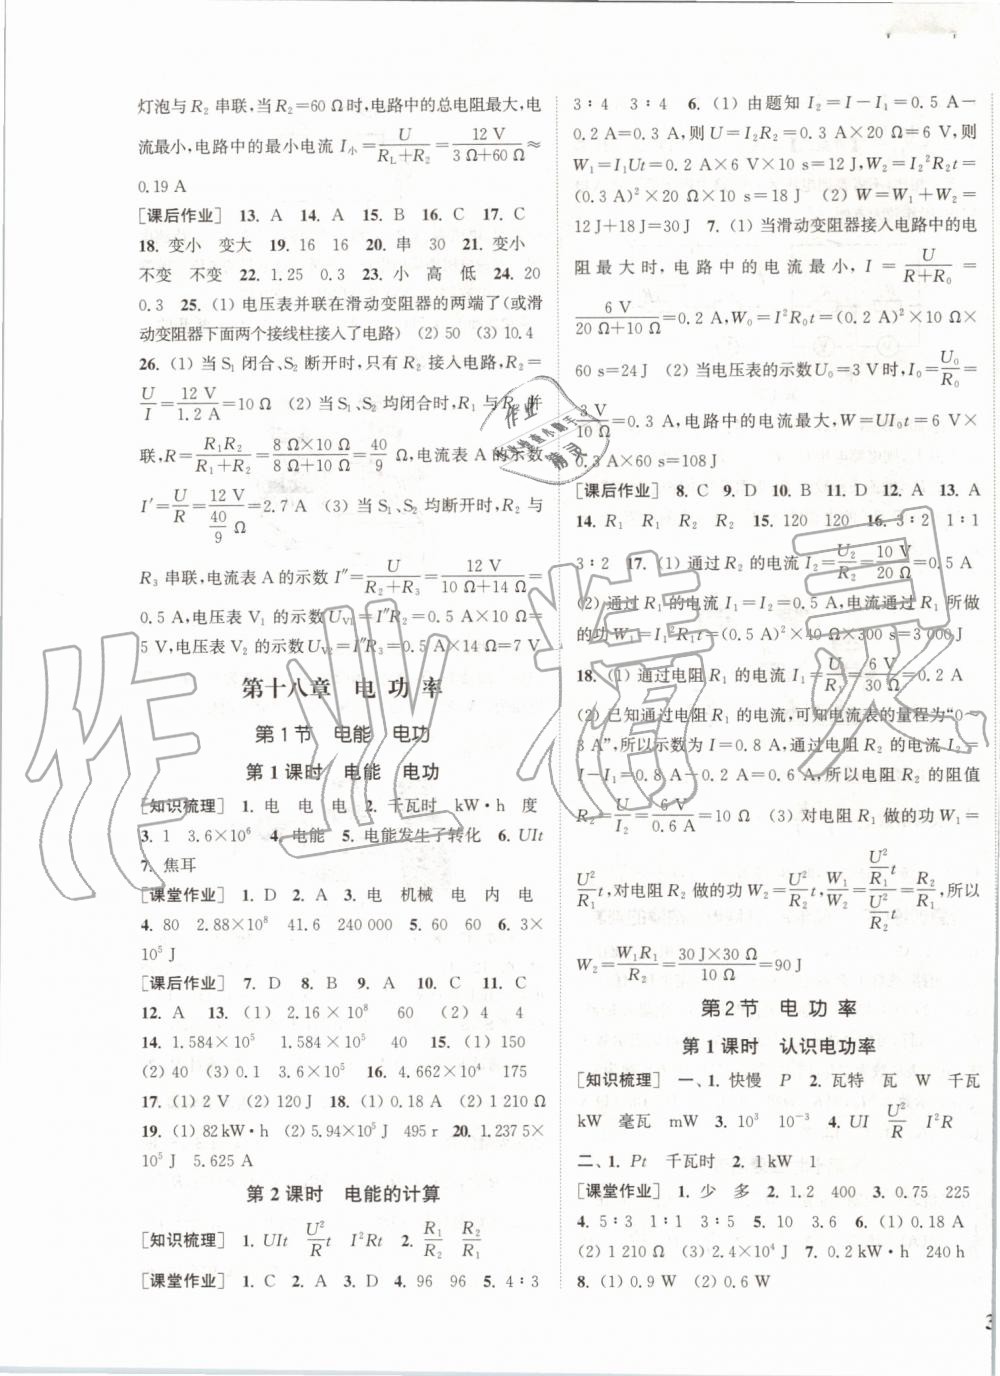 灯泡与 R₂ 串联,当 R₂=60 Ω时,电路中的总电阻最大,电
流最小,电路中的最小电流 I小=U/(R_L+R₂)=12 V/(3 Ω+60 Ω)≈
0.19 A
[课后作业] 13. A 14. A 15. B 16. C 17. C
18. 变小 变大 19. 16 16 20. 串 30 21. 变小
不变 不变 22. 1.25 0.3 23. 小 高 低 24. 20
0.3 25. (1) 电压表并联在滑动变阻器的两端了(或滑
动变阻器下面两个接线柱接入了电路) (2) 50 (3) 10.4
26. (1) 当 S₁ 闭合、S₂ 断开时,只有 R₂ 接入电路,R₂=
U/I=12 V/1.2 A=10 Ω (2) 当 S₁、S₂ 均闭合时,R₁ 与 R₂ 并
联,R=R₁R₂/(R₁+R₂)=(8 Ω×10 Ω)/(8 Ω+10 Ω)=40/9 Ω,电流表 A 的示数
I′=U/R=12 V/(40/9 Ω)=2.7 A (3) 当 S₁、S₂ 均断开时,R₂ 与
R₃ 串联,电流表 A 的示数 I″=U/(R₂+R₃)=12 V/(10 Ω+14 Ω)=
0.5 A,电压表 V₁ 的示数 U_V1=I″R₂=0.5 A×10 Ω=
5 V,电压表 V₂ 的示数 U_V2=I″R₃=0.5 A×14 Ω=7 V
第十八章 电功率
第1节 电能 电功
第1课时 电能 电功
[知识梳理] 1. 电 电 电 2. 千瓦时 kW·h 度
3. 1 3.6×10⁶ 4. 电能 5. 电能发生了转化 6. UIt
7. 焦耳
[课堂作业] 1. D 2. A 3. 电 机械 电 内 电
4. 80 2.88×10⁸ 41.6 240 000 5. 60 60 6. 3×
10⁵ J
[课后作业] 7. D 8. B 9. A 10. C 11. C
12. A 13. (1) 2.16×10⁸ 60 (2) 4 4
14. 1.584×10⁵ 1.584×10⁵ 40 15. (1) 150
(2) 40 (3) 0.1 3.6×10⁵ 16. 4.662×10⁴ 175
17. (1) 2 V (2) 120 J 18. (1) 0.18 A (2) 1 210 Ω
19. (1) 82 kW·h (2) 5.94×10⁵ J 495 r 20. 1.237 5×
10⁵ J 5.625 A
第2课时 电能的计算
[知识梳理] 1. UIt U²/R t I²Rt 2. R₁/R₂ R₂/R₁
[课堂作业] 1. C 2. A 3. D 4. 96 96 5. 4∶3
3∶4 3∶4 6. (1) 由题知 I₂=I-I₁=0.5 A-
0.2 A=0.3 A,则 U=I₂R₂=0.3 A×20 Ω=6 V,则
W₁=I₁Ut=0.2 A×6 V×10 s=12 J,W₂=I₂²R₂t=
(0.3 A)²×20 Ω×10 s=18 J (2) W=W₁+W₂=
12 J+18 J=30 J 7. (1) 当滑动变阻器接入电路中的电
阻最大时,电路中的电流最小,I=U/(R+R₀)=
6 V/(20 Ω+10 Ω)=0.2 A,W₀=I²R₀t=(0.2 A)²×10 Ω×
60 s=24 J (2) 当电压表的示数U₀=3 V时,I₀=U₀/R₀=
3 V/10 Ω=0.3 A,电路中的电流最大,W=UI₀t=6 V×
0.3 A×60 s=108 J
[课后作业] 8. C 9. D 10. B 11. D 12. A 13. A
14. R₁ R₁ R₂ R₂ 15. 120 120 16. 3∶2 1∶1
3∶2 17. (1) 通过 R₂ 的电流 I₂=U₂/R₂=10 V/20 Ω=0.5 A
(2) 通过 R₁ 的电流 I₁=I₂=0.5 A,电流通过 R₁ 所做
的功 W₁=I₁²R₁t=(0.5 A)²×40 Ω×300 s=3 000 J
18. (1) 通过电阻 R₁ 的电流 I₁=U/R₁=6 V/30 Ω=0.2 A
(2) 已知通过电阻 R₁ 的电流,可知电流表的量程为“0~
3 A”,所以示数为 I=0.8 A,通过电阻 R₂ 的电流 I₂=
I-I₁=0.8 A-0.2 A=0.6 A,所以电阻 R₂ 的阻值
R₂=U/I₂=6 V/0.6 A=10 Ω (3) 对电阻 R₁ 做的功 W₁=
U²/R₁ t,对电阻 R₂ 做的功 W₂=U²/R₂ t,W₁/W₂=(U²/R₁ t)/(U²/R₂ t)=R₂/R₁,所以
W₂=W₁R₁/R₂=(30 J×30 Ω)/10 Ω=90 J
第2节 电功率
第1课时 认识电功率
[知识梳理] 一、1. 快慢 P 2. 瓦特 瓦 W 千瓦
kW 毫瓦 mW 3. 10³ 10⁻³ 4. UI U²/R I²R
二、1. Pt 千瓦时 2. 1 kW 1
[课堂作业] 1. 少 多 2. 1.2 400 3. 0.75 225
4. 5∶3 1∶1 3∶5 5. 10 3.6 6. (1) 0.18 A
(2) 1 210 Ω (3) 2.4×10⁴ J 7. 0.2 kW·h 240 h
8. (1) 0.9 W (2) 0.6 W
作业精灵